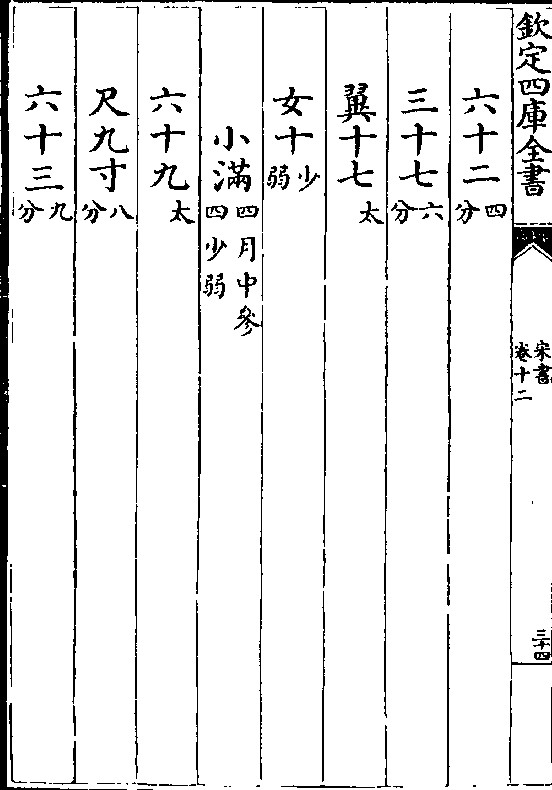 欽定四庫全書
宋書
卷十二
三十四
六十二四分
三十七六分
翼十七太
女十少弱
小滿四月中參四少弱
六十九太
尺九寸八分
六十三九分